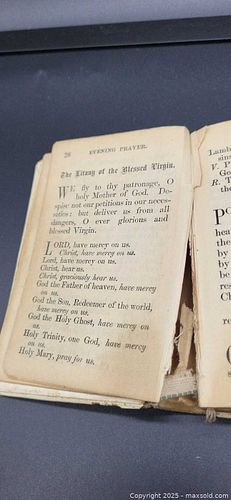 28 EVENING PRAYER.
The Litany of the Blessed Virgin.
WE fly to thy patronage, O
holy Mother of God. De-
spise not our petitions in our neces-
sities: but deliver us from all
dangers, O ever glorious and
blessed Virgin.
LORD, have mercy on us.
Christ, have mercy on us.
Lord, have mercy on us.
Christ, hear us.
Christ, graciously hear us.
God the Father of heaven, have mercy
on us.
God the Son, Redeemer of the world,
have mercy on us.
God the Holy Ghost, have mercy on
us.
Holy Trinity, one God, have mercy
on us.
Holy Mary, pray for us.
Lamb
sin
V. P
Go
R. T
the
hea
the
by
by
be
res
Ch
Copyright © 2025 - maxsold.com